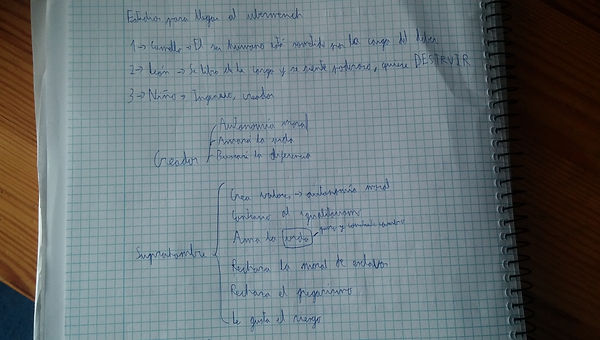 Estadios para llegar al ubermench
1 → Camello → El ser humano está sometido por la carga del deber
2 → León → Se libra de la carga y se siente poderoso, quiere DESTRUIR
3 → Niño → Ingenuo, creador
Creador
Autonomía moral
Amará la vida
Buscará la diferencia
Suprahombre
Crea valores → autonomía moral
Contrario al igualitarism
Ama la vida
Rechaza la moral de esclavos
Rechaza el gregarismo
Le gusta el riesgo